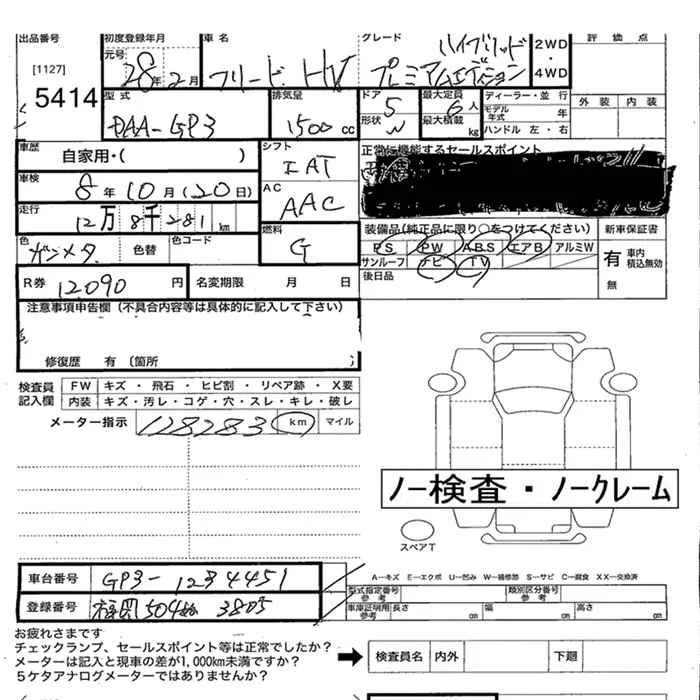 出品番号 初度登録年月 車名 グレード 評価点
[1127] 元号 28年2月 フリード HV ハイブリッド プレミアムエディション 2WD・4WD 外装 内装
5414 型式 DAA-GP3 排気量 1500cc ドア 5 形状 W 最大定員 6人 最大積載 kg ディーラー・並行 モデル年式 年 ハンドル 左・右
車歴 自家用・( ) シフト IAT 正常に機能するセールスポイント
車検 8年10月(20日) AC AAC
走行 12万8千281km 装備品(純正品に限り○をつけてください) 新車保証書
色 ガンメタ 色替 色コード 燃料 G PS PW ABS エアB アルミW 有 車内積込無効
サンルーフ ナビ TV
R券 12090円 名変期限 月 日 後日品 無
注意事項申告欄(不具合内容等は具体的に記入して下さい)
修復歴 有〔箇所
検査員記入欄 FW キズ・飛石・ヒビ割・リペア跡・X要
内装 キズ・汚レ・コゲ・穴・スレ・キレ・破レ
メーター指示 128283 km マイル
ノー検査・ノークレーム
スペアT
車台番号 GP3-1234451 A－キズ E－エクボ U－凹み W－補修跡 S－サビ C－腐食 XX－交換済
型式指定番号 参考 類別区分番号 参考
登録番号 福岡504 3805 車庫証明用 参考 長さ cm 幅 cm 高さ cm
お疲れさまです
チェックランプ、セールスポイント等は正常でしたか？
メーターは記入と現車の差が1,000km未満ですか？ 検査員名 内外 下廻
5ケタアナログメーターではありませんか？